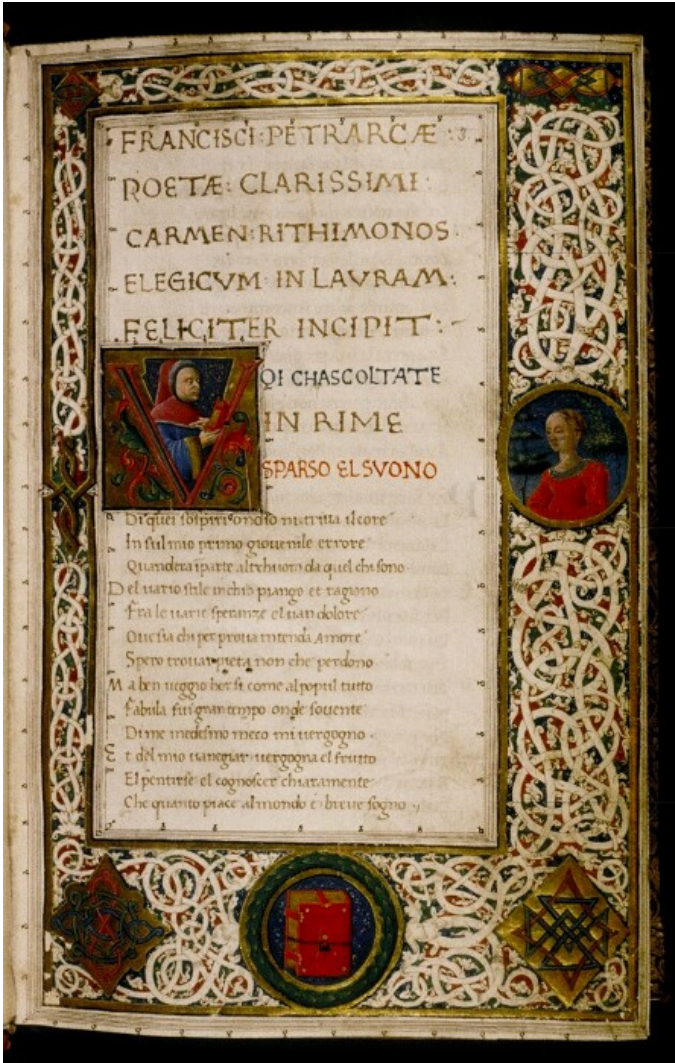 FRANCISCI PETRARCÆ : 3
POETÆ: CLARISSIMI:
CARMEN: RITHIMONOS
ELEGICVM IN LAVRAM:
FELICITER INCIPIT:
VOI CHASCOLTATE
IN RIME
SPARSO EL SVONO
Di quei sospiri ondio nutriua il core
In sul mio primo giouenile errore
Quandera iparte altrhuom da quel chi sono
Del uario stile inchio piango et ragiono
Fra le uane speranze el uan dolore
Oue sia chi per proua intenda Amore
Spero trouar pieta non che perdono
Ma ben ueggio hor si come al popul tutto
Fabula fui gran tempo onde souente
Di me medesmo meco mi uergogno
Et del mio uanegiar uergogna el frutto
El pentirse el cognoscer chiaramente
Che quanto piace al mondo e breue sogno